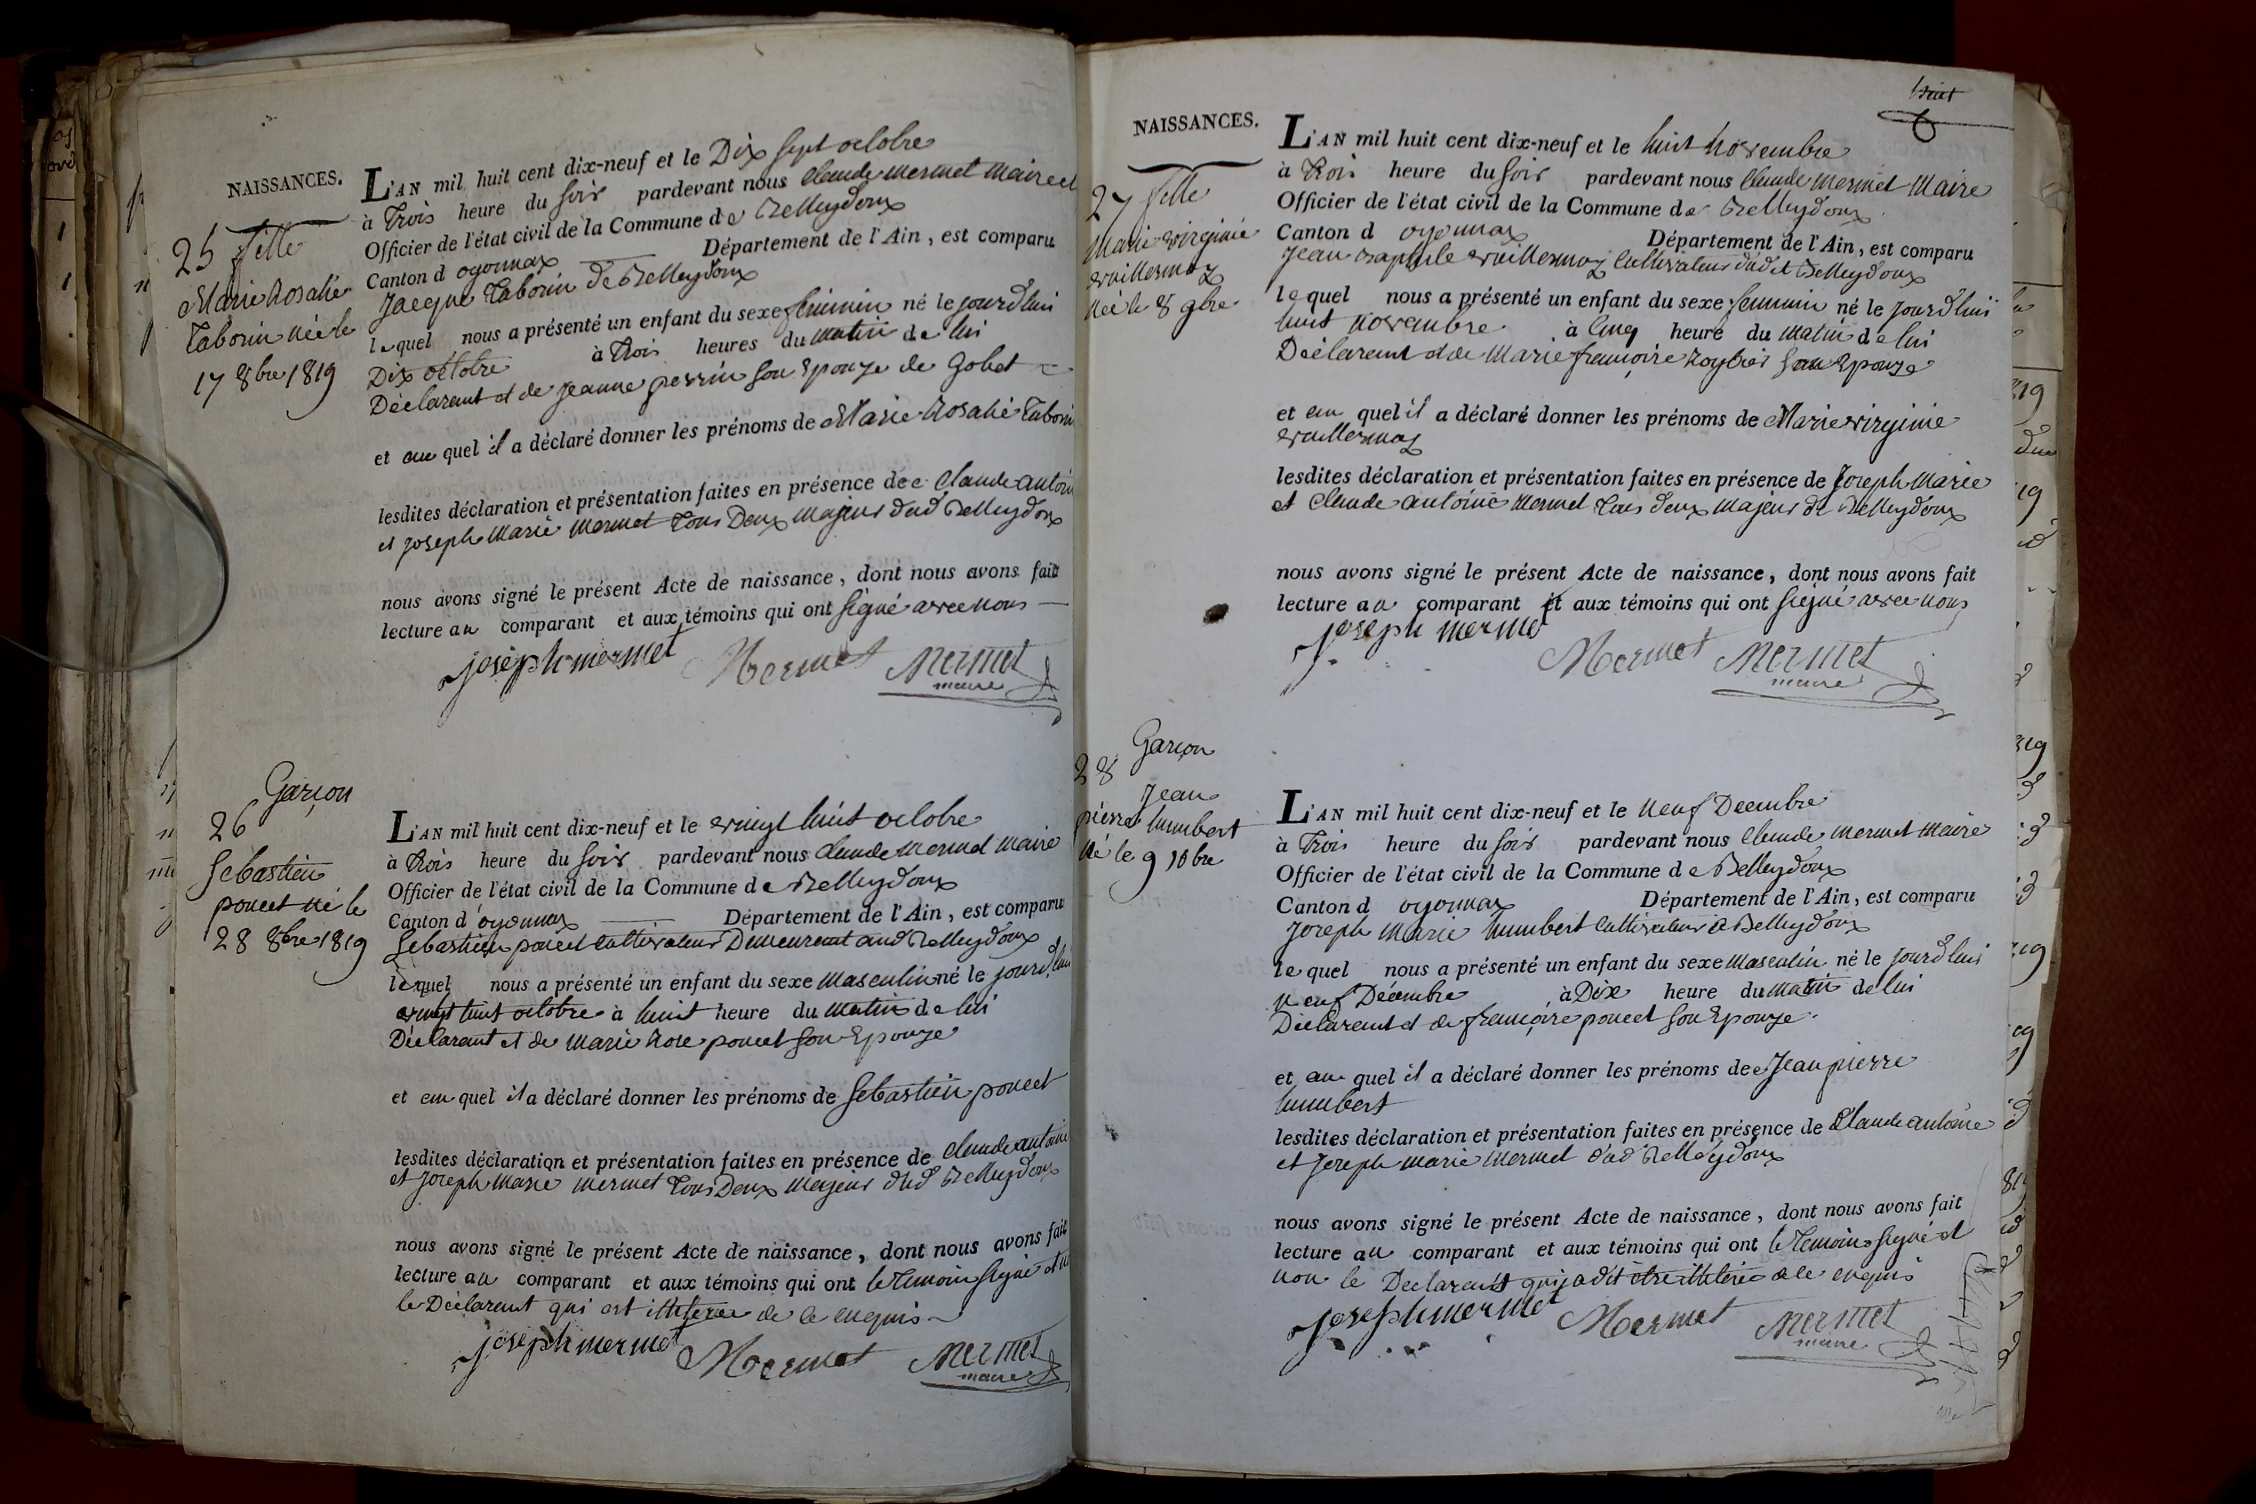 NAISSANCES.
25 fille
Marie Rosalie
Tabourin née le
17 8bre 1819
L'AN mil huit cent dix-neuf et le Dix sept octobre
à trois heure du soir pardevant nous Claude Mermet Maire et
Officier de l'état civil de la Commune de Belleydoux
Canton d oyonnax Département de l'Ain, est comparu
Jacque Tabourin de Belleydoux
lequel nous a présenté un enfant du sexe feminin né le jourdhui
Dix octobre à trois heures du matin de lui
Déclarant et de jeanne perrin son Epouze de Gobet
et au quel il a déclaré donner les prénoms de Marie Rosalie Tabourin
lesdites déclaration et présentation faites en présence de Claude antoine
et joseph Marie Mermet tous Deux majeur dud Belleydoux
nous avons signé le présent Acte de naissance, dont nous avons fait
lecture au comparant et aux témoins qui ont signé avec nous
joseph mermet Mermet Mermet
maire
Garçon
26
Sebastien
poncet né le
28 8bre 1819
L'AN mil huit cent dix-neuf et le vingt huit octobre
à trois heure du soir pardevant nous Claude Mermet Maire
Officier de l'état civil de la Commune de Belleydoux
Canton d oyonnax Département de l'Ain, est comparu
Sebastien poncet Cultivateur Demeurant aud Belleydoux
lequel nous a présenté un enfant du sexe masculin né le jourdhui
vingt huit octobre à huit heure du matin de lui
Déclarant et de Marie Rose poncet son Epouze
et au quel il a déclaré donner les prénoms de Sebastien poncet
lesdites déclaration et présentation faites en présence de Claude antoine
et Joseph Marie mermet tous Deux majeur dud Belleydoux
nous avons signé le présent Acte de naissance, dont nous avons fait
lecture au comparant et aux témoins qui ont le temoin signé et non
le Déclarant qui est illiteree de ce enquis
joseph mermet Mermet Mermet
maire
huit
NAISSANCES.
27 fille
Marie virginie
vuillermoz
née le 8 9bre
L'AN mil huit cent dix-neuf et le huit Novembre
à trois heure du soir pardevant nous Claude Mermet Maire
Officier de l'état civil de la Commune de Belleydoux
Canton d oyonnax Département de l'Ain, est comparu
Jean Baptiste vuillermoz Cultivateur dudit Belleydoux
lequel nous a présenté un enfant du sexe feminin né le jourdhui
huit Novembre à cinq heure du matin de lui
Déclarant et de Marie françoise Roybier son Epouze
et au quel il a déclaré donner les prénoms de Marie virginie
vuillermoz
lesdites déclaration et présentation faites en présence de Joseph Marie
et Claude antoine Mermet tous deux majeur de Belleydoux
nous avons signé le présent Acte de naissance, dont nous avons fait
lecture au comparant et aux témoins qui ont signé avec nous
joseph mermet
Mermet Mermet
maire
Garçon
28
Jean
pierre humbert
né le 9 10bre
L'AN mil huit cent dix-neuf et le neuf Decembre
à trois heure du soir pardevant nous Claude Mermet Maire
Officier de l'état civil de la Commune de Belleydoux
Canton d oyonnax Département de l'Ain, est comparu
Joseph Marie humbert Cultivateur de Belleydoux
lequel nous a présenté un enfant du sexe masculin né le jourdhui
neuf Décembre à Dix heure du matin de lui
Déclarant et de françoise poncet son Epouze
et au quel il a déclaré donner les prénoms de Jean pierre
humbert
lesdites déclaration et présentation faites en présence de Claude antoine
et Joseph Marie Mermet dud Belleydoux
nous avons signé le présent Acte de naissance, dont nous avons fait
lecture au comparant et aux témoins qui ont le temoin signé et
non le Declarant qui a dit etre illiteree de ce enquis
joseph mermet Mermet Mermet
maire